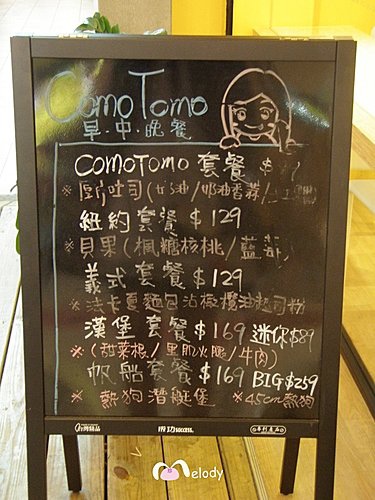 Como Tomo
早·中·晚餐
COMOTOMO 套餐 $
※厚吐司(奶油/奶油香蒜/
紐約套餐 $129
※貝果(楓糖核桃/藍莓
義式套餐 $129
※法卡夏麵包沾橄欖油起司粉
漢堡套餐 $169 迷你$89
※(甜菜根/里肌火腿/牛肉)
帆船套餐 $169 BIG $259
※熱狗潛艇堡 ※45cm熱狗
成功 success.
Melody